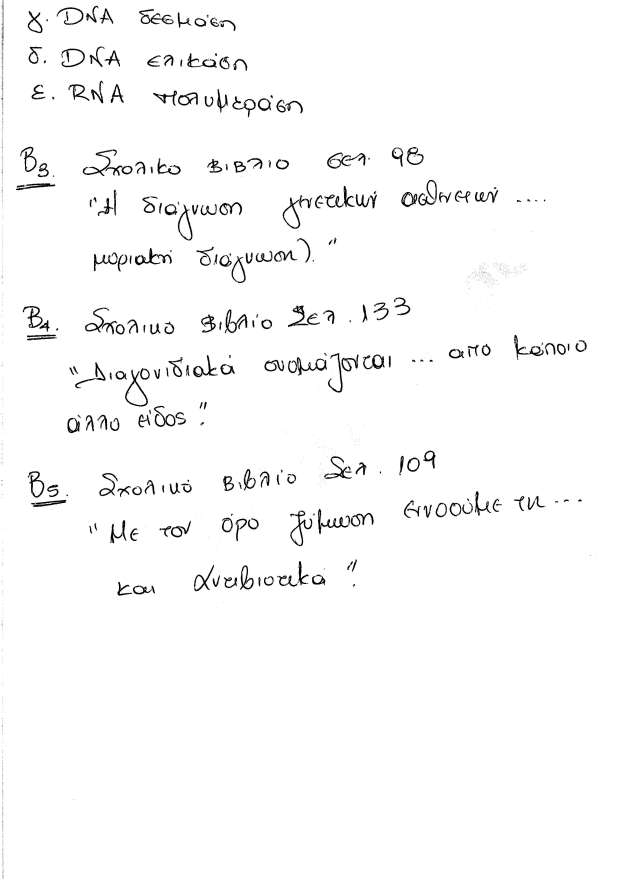 γ. DNA δεσμάση
δ. DNA ελικάση
ε. RNA πολυμεράση
Β3. Σχολικό βιβλίο σελ. 98
"Η διάγνωση γενετικών ασθενειών ....
μοριακή διάγνωση)."
Β4. Σχολικό βιβλίο Σελ. 133
"Διαγονιδιακά ονομάζονται ... από κάποιο
άλλο είδος".
Β5. Σχολικό βιβλίο Σελ. 109
"Με τον όρο ζύμωση εννοούμε τη ...
και αντιβιοτικά".